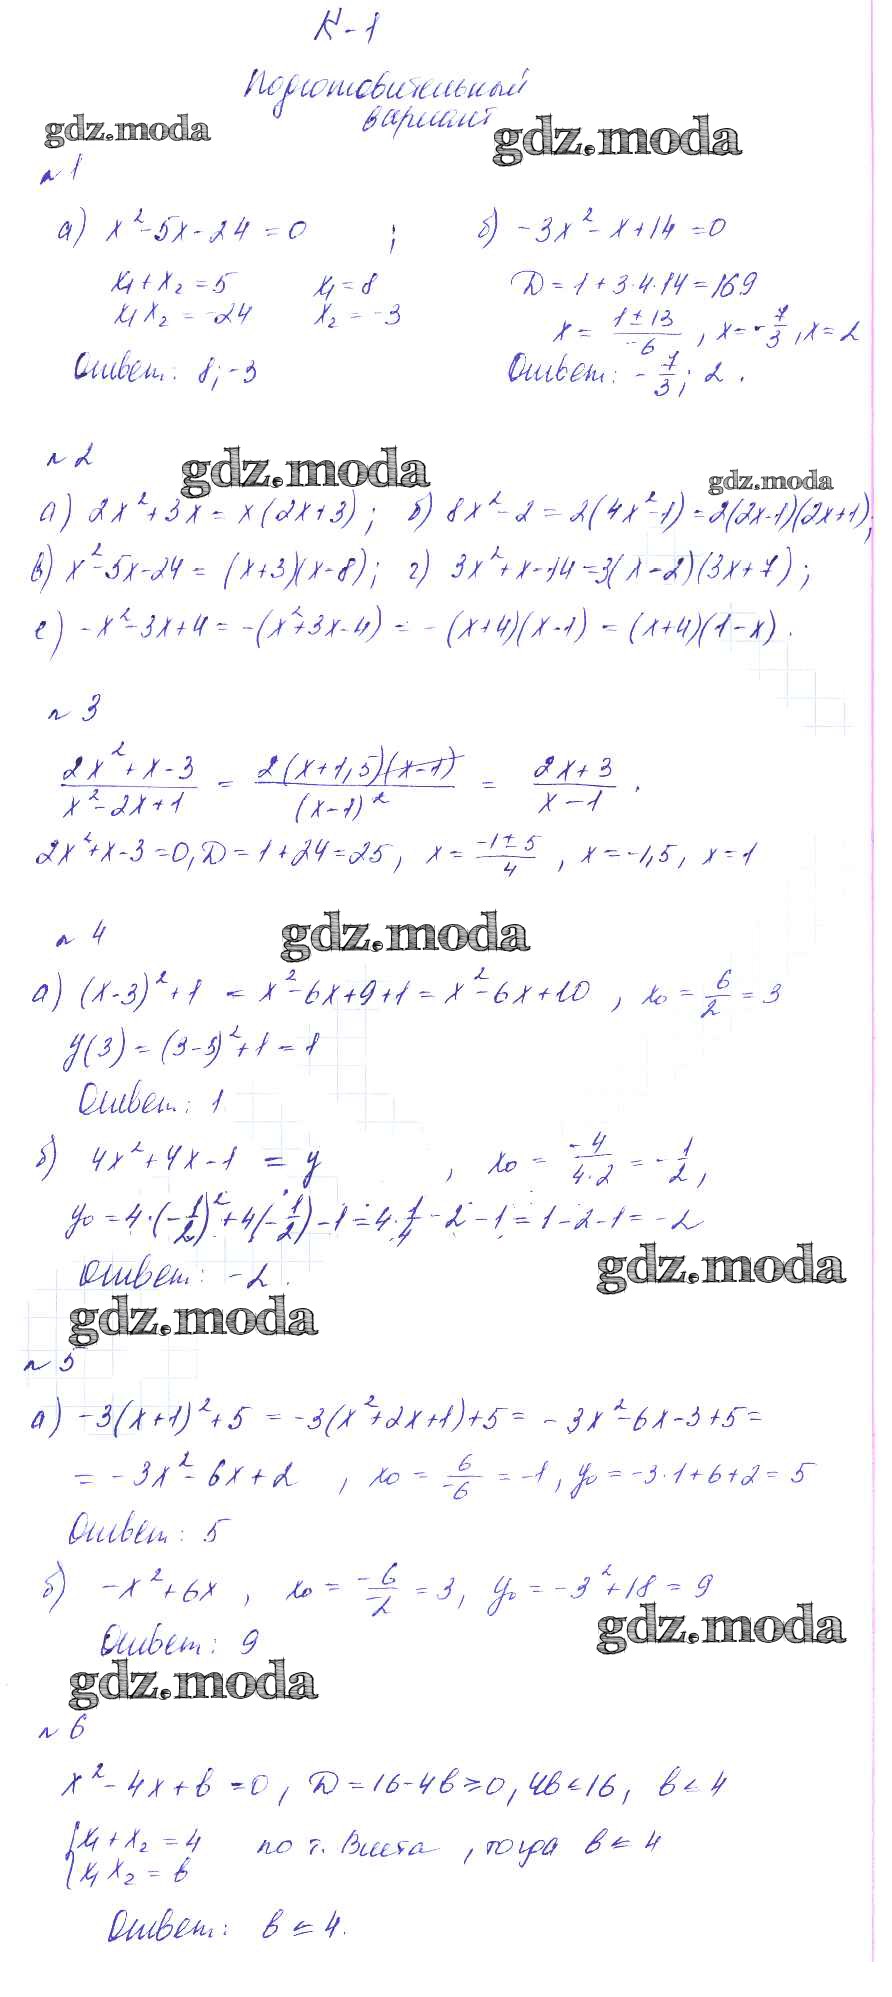 К-1
Подготовительный
вариант
gdz.moda
gdz.moda
№1
а) x²-5x-24=0 ; б) -3x²-x+14=0
x₁+x₂=5 x₁=8 D=1+3·4·14=169
x₁x₂=-24 x₂=-3 x=(1±13)/(-6), x=-7/3, x=2
Ответ: 8; -3 Ответ: -7/3; 2.
№2
gdz.moda
gdz.moda
а) 2x²+3x=x(2x+3); б) 8x²-2=2(4x²-1)=2(2x-1)(2x+1);
в) x²-5x-24=(x+3)(x-8); г) 3x²+x-14=3(x-2)(3x+7);
е) -x²-3x+4=-(x²+3x-4)=-(x+4)(x-1)=(x+4)(1-x).
№3
(2x²+x-3)/(x²-2x+1) = 2(x+1,5)(x-1)/(x-1)² = (2x+3)/(x-1).
2x²+x-3=0, D=1+24=25, x=(-1±5)/4, x=-1,5, x=1
№4
gdz.moda
а) (x-3)²+1 = x²-6x+9+1=x²-6x+10, x₀=6/2=3
y(3)=(3-3)²+1=1
Ответ: 1.
б) 4x²+4x-1=y, x₀=-4/(4·2)=-1/2,
y₀=4·(-1/2)²+4(-1/2)-1=4·1/4-2-1=1-2-1=-2
Ответ: -2.
gdz.moda
gdz.moda
№5
а) -3(x+1)²+5=-3(x²+2x+1)+5=-3x²-6x-3+5=
=-3x²-6x+2, x₀=6/(-6)=-1, y₀=-3·1+6+2=5
Ответ: 5
б) -x²+6x, x₀=-6/-2=3, y₀=-3²+18=9
Ответ: 9
gdz.moda
gdz.moda
№6
x²-4x+b=0, D=16-4b≥0, 4b≤16, b≤4
{x₁+x₂=4 по т. Виета, тогда b≤4
x₁x₂=b
Ответ: b≤4.